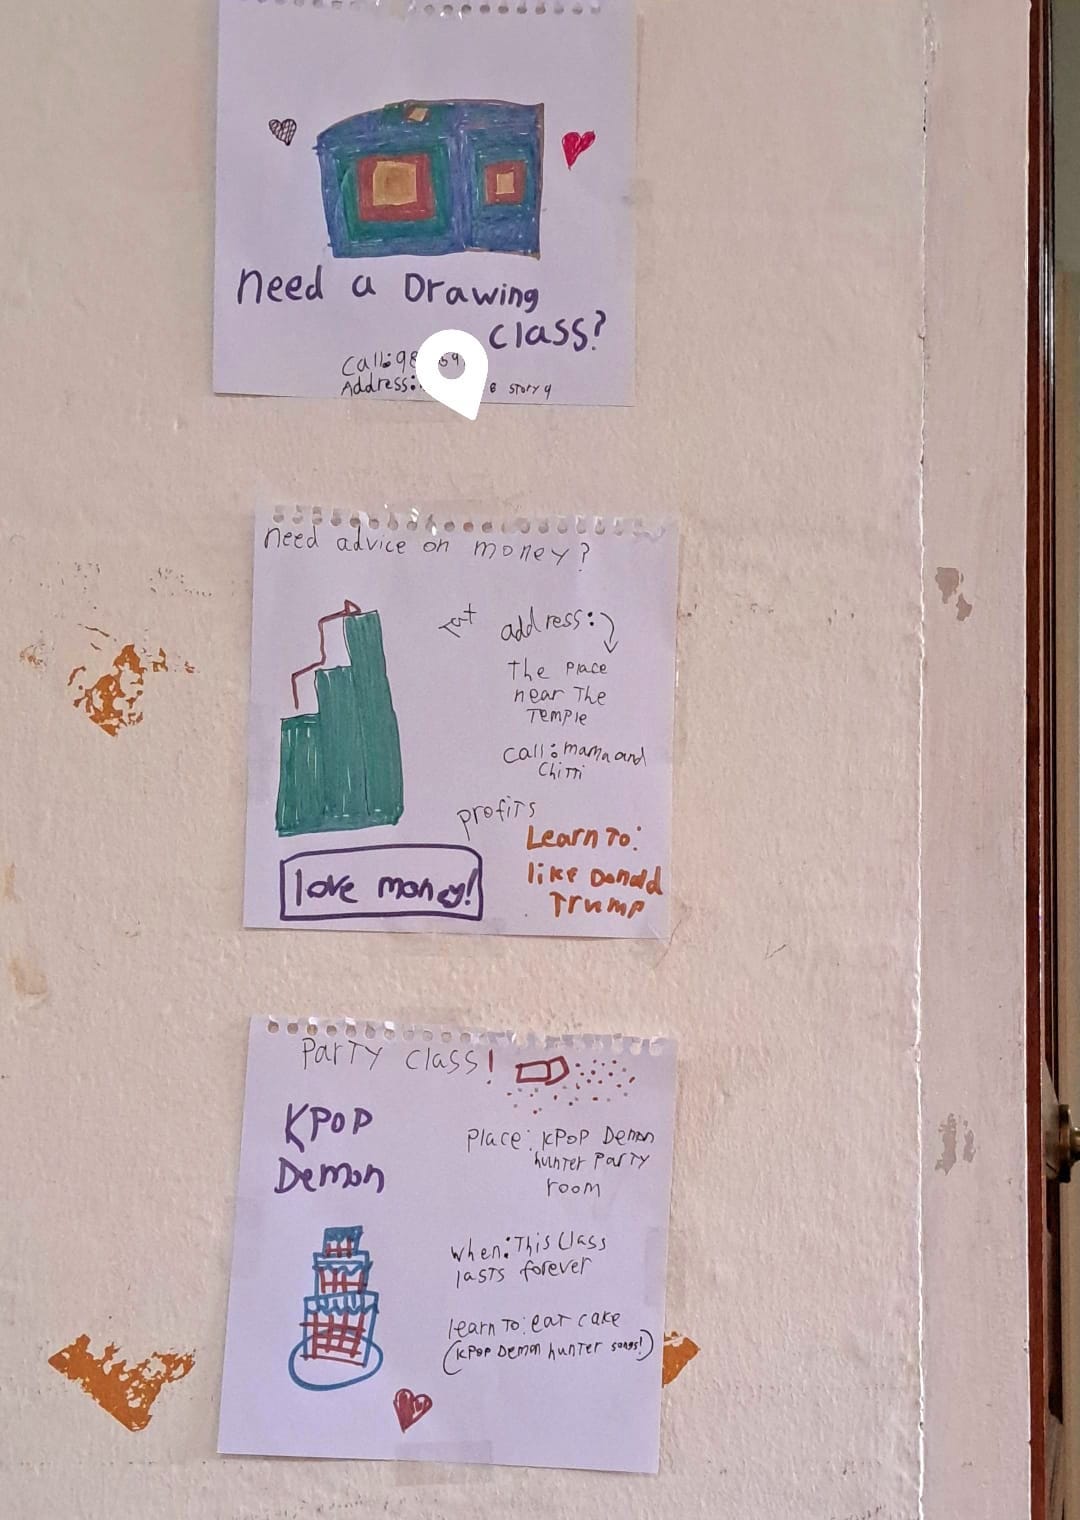 need a Drawing
class?
Call:
Address: story 9
need advice on money?
address:
The Place
near The
Temple
call: mama and
Chitti
profits
Learn To:
like Donald
Trump
love money!
Party class!
KPOP
Demon
Place: KPOP Demon
hunter Party
room
when: This Class
lasts forever
learn To: eat cake
(KPOP Demon hunter songs!)